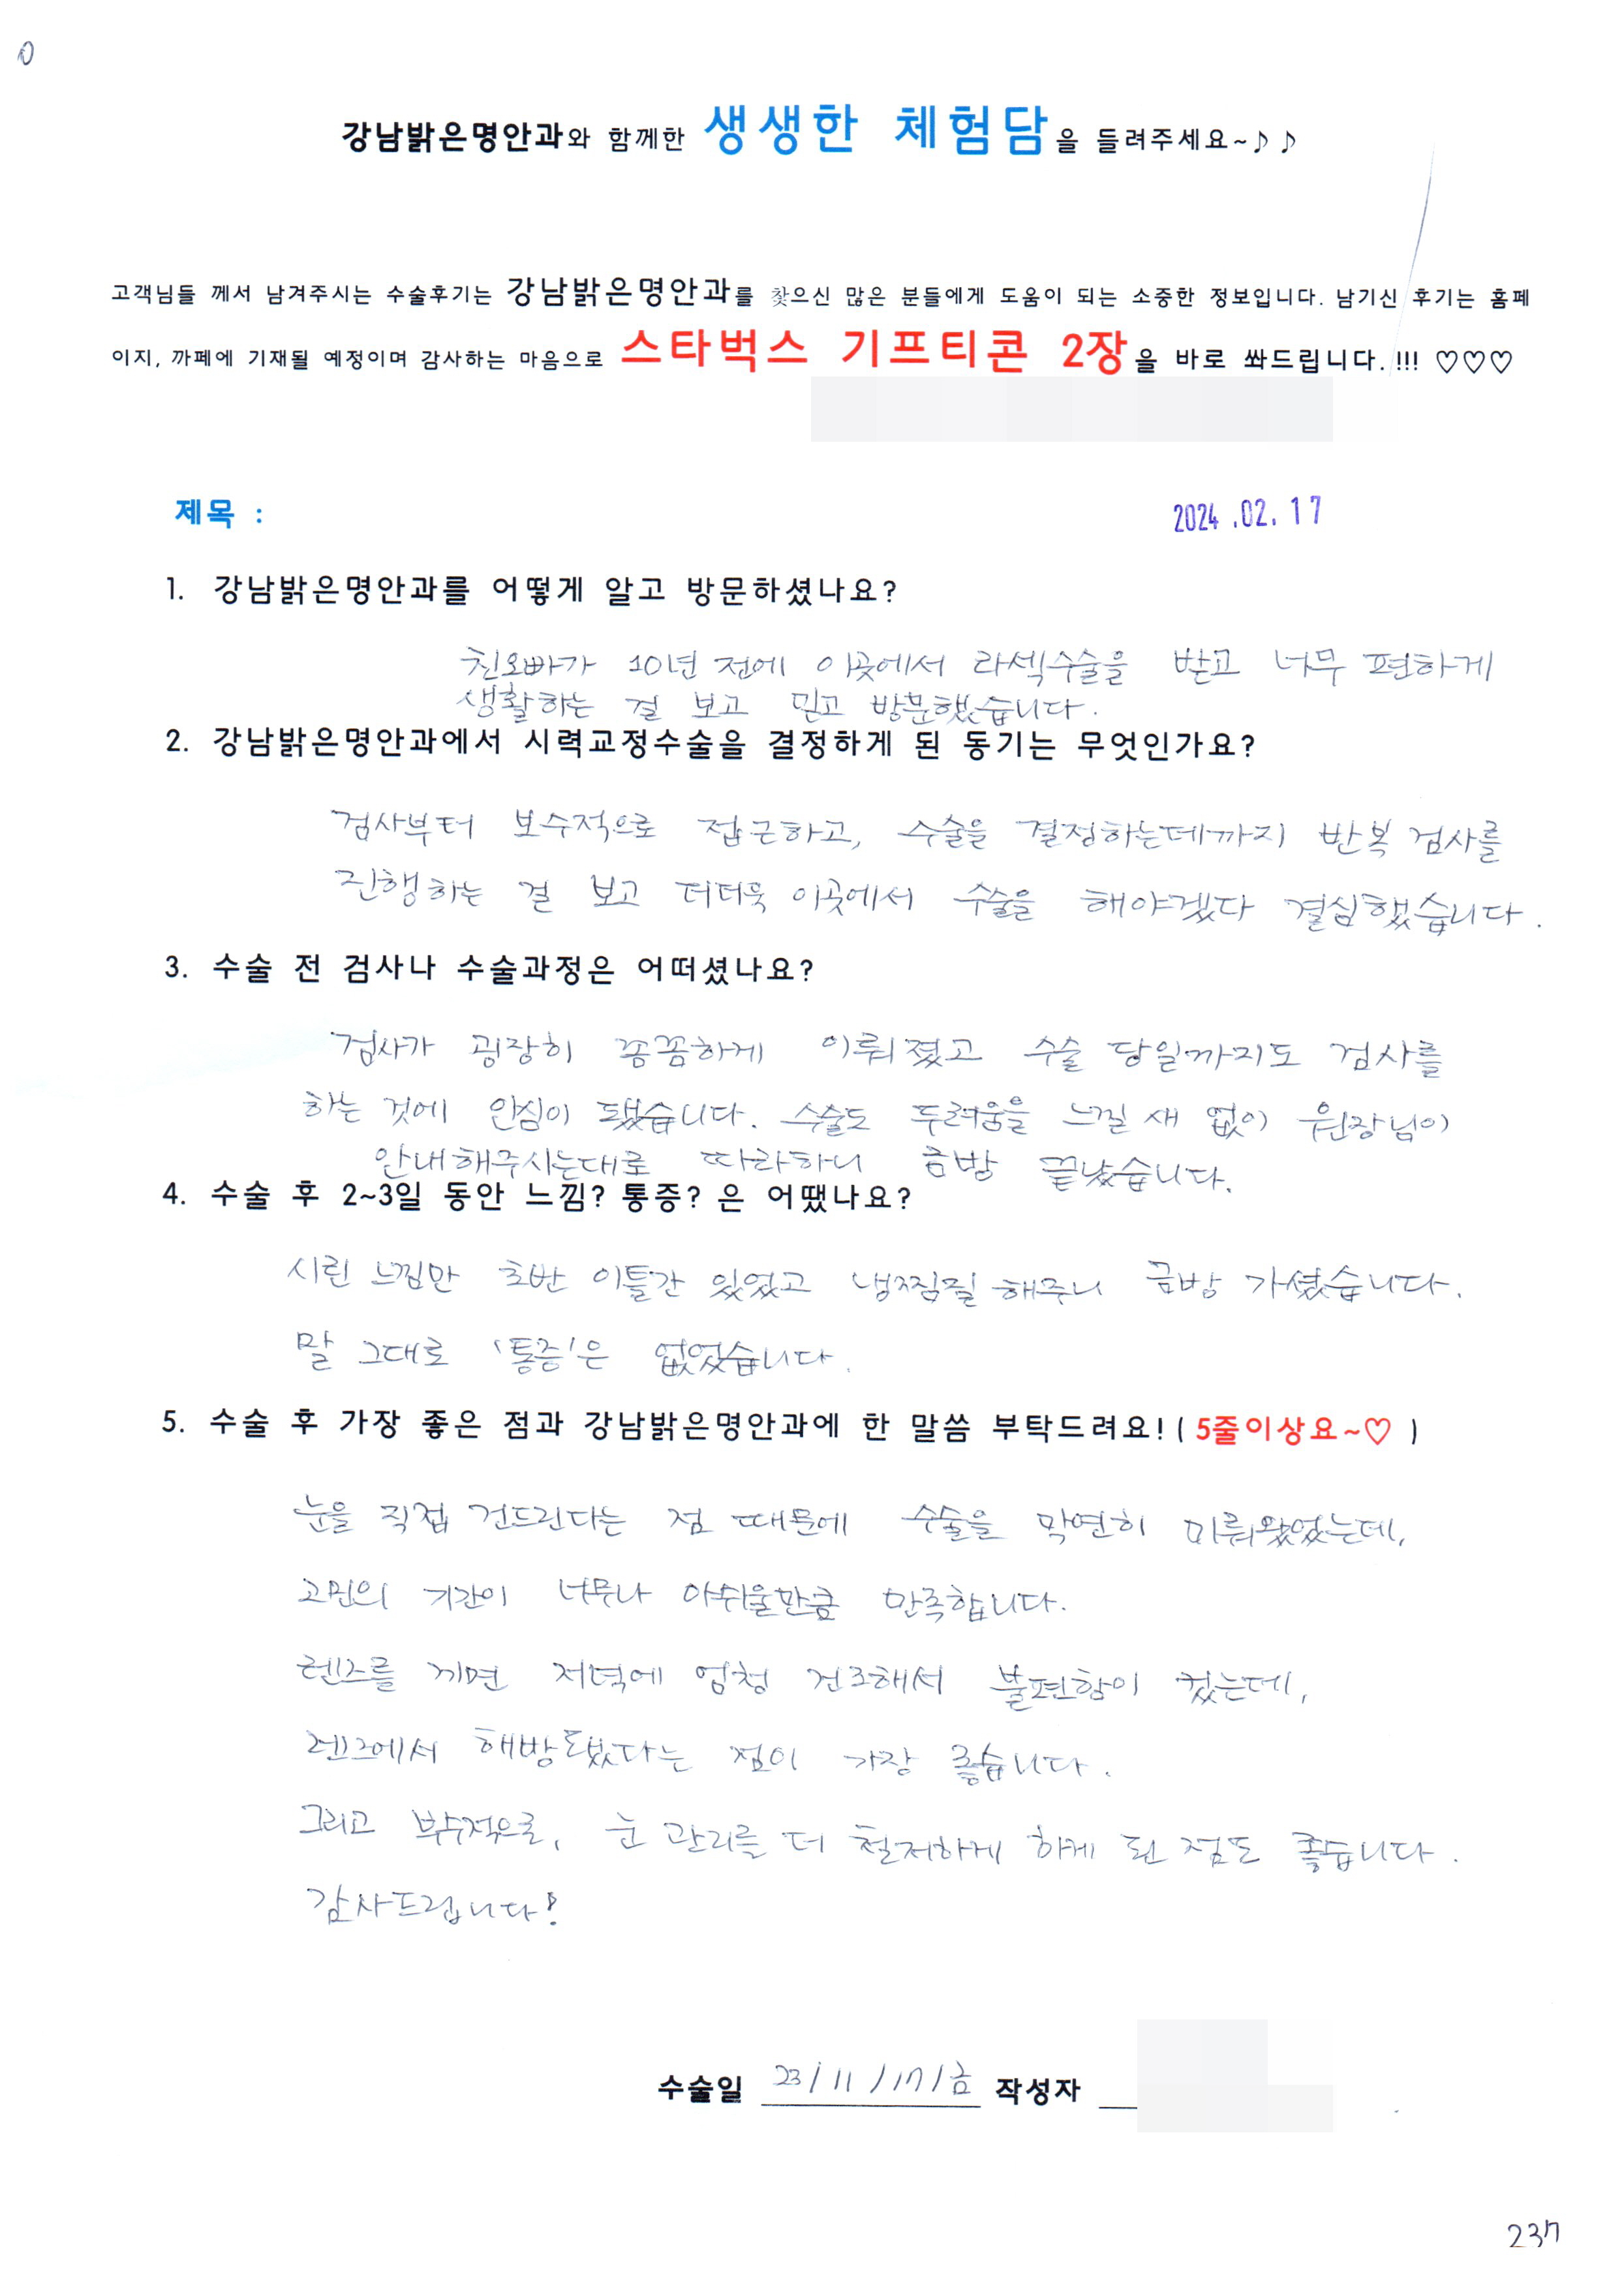 강남밝은명안과와 함께한 생생한 체험담을 들려주세요~♪♪
고객님들 께서 남겨주시는 수술후기는 강남밝은명안과를 찾으신 많은 분들에게 도움이 되는 소중한 정보입니다. 남기신 후기는 홈페
이지, 까페에 기재될 예정이며 감사하는 마음으로 스타벅스 기프티콘 2장을 바로 쏴드립니다.!!! ♡♡♡
제목 :
2024.02.17
1. 강남밝은명안과를 어떻게 알고 방문하셨나요?
친오빠가 10년 전에 이곳에서 라섹수술을 받고 너무 편하게
생활하는 걸 보고 믿고 방문했습니다.
2. 강남밝은명안과에서 시력교정수술을 결정하게 된 동기는 무엇인가요?
검사부터 보수적으로 접근하고, 수술을 결정하는데까지 반복 검사를
진행하는 걸 보고 더더욱 이곳에서 수술을 해야겠다 결심했습니다.
3. 수술 전 검사나 수술과정은 어떠셨나요?
검사가 굉장히 꼼꼼하게 이뤄졌고 수술 당일까지도 검사를
하는 것에 안심이 됐습니다. 수술도 두려움을 느낄 새 없이 원장님이
안내해주시는대로 따라하니 금방 끝났습니다.
4. 수술 후 2~3일 동안 느낌? 통증? 은 어땠나요?
시린 느낌만 초반 이틀간 있었고 냉찜질 해주니 금방 가셨습니다.
말 그대로 '통증'은 없었습니다.
5. 수술 후 가장 좋은 점과 강남밝은명안과에 한 말씀 부탁드려요!( 5줄이상요~♡ )
눈을 직접 건드린다는 점 때문에 수술을 막연히 미뤄왔었는데,
고민의 기간이 너무나 아쉬울만큼 만족합니다.
렌즈를 끼면 저녁에 엄청 건조해서 불편함이 컸는데,
렌즈에서 해방됐다는 점이 가장 좋습니다.
그리고 부수적으로, 눈 관리를 더 철저하게 하게 된 점도 좋습니다.
감사드립니다!
수술일 23/11/17/금 작성자
237